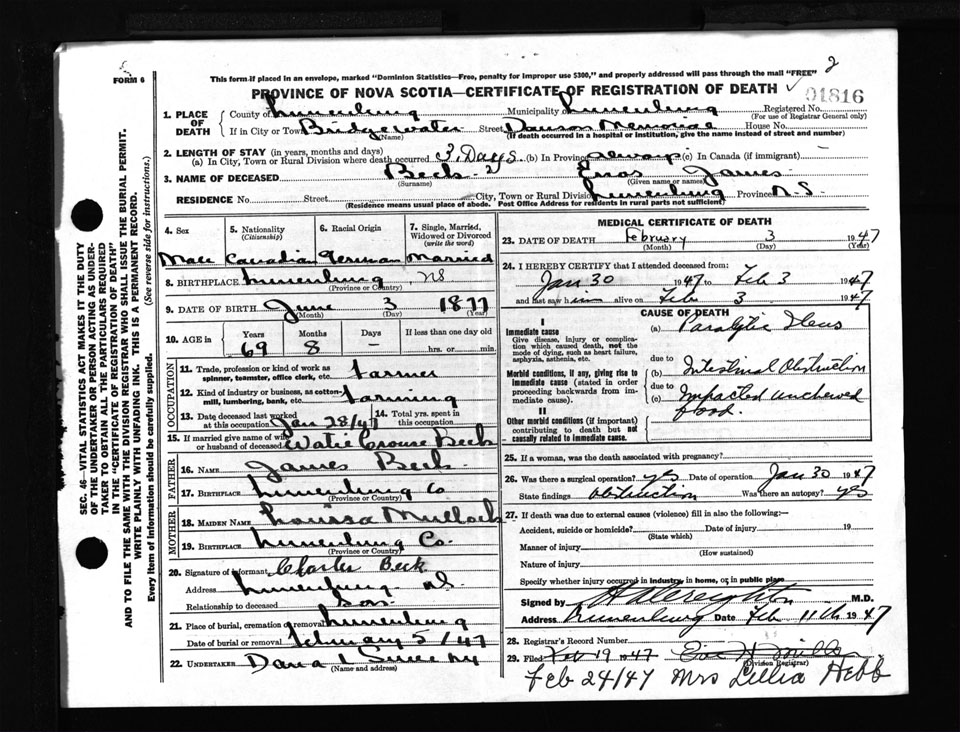 2
FORM 6
This form if placed in an envelope, marked "Dominion Statistics—Free, penalty for improper use $300," and properly addressed will pass through the mail "FREE"
PROVINCE OF NOVA SCOTIA—CERTIFICATE OF REGISTRATION OF DEATH
01816
1. PLACE OF DEATH
County of Lunenburg Municipality of Lunenburg Registered No.
(For use of Registrar General only)
If in City or Town Bridgewater Street Dawson Memorial House No.
(Name) (If death occurred in a hospital or institution, give the name instead of street and number)
2. LENGTH OF STAY (in years, months and days)
(a) In City, Town or Rural Division where death occurred 3 Days (b) In Province always (c) In Canada (if immigrant) —
3. NAME OF DECEASED Beck Enos James
(Surname) (Given name or names)
RESIDENCE No. Street City, Town or Rural Division Lunenburg Province N.S.
(Residence means usual place of abode. Post Office Address for residents in rural parts not sufficient)
4. Sex
5. Nationality (Citizenship)
6. Racial Origin
7. Single, Married, Widowed or Divorced (write the word)
Male Canadian German Married
8. BIRTHPLACE Lunenburg NS
(Province or Country)
9. DATE OF BIRTH June 3 1877
(Month) (Day) (Year)
10. AGE in Years Months Days If less than one day old
69 8 — hrs. or min.
OCCUPATION
11. Trade, profession or kind of work as spinner, teamster, office clerk, etc. Farmer
12. Kind of industry or business, as cotton-mill, lumbering, bank, etc. Farming
13. Date deceased last worked at this occupation Jan 28/47
14. Total yrs. spent in this occupation
15. If married give name of wife or husband of deceased Crouse Beck
FATHER
16. NAME James Beck
17. BIRTHPLACE Lunenburg Co
(Province or Country)
MOTHER
18. MAIDEN NAME Mullock
19. BIRTHPLACE Lunenburg Co.
(Province or Country)
20. Signature of informant Charles Beck
Address Lunenburg NS
Relationship to deceased Son
21. Place of burial, cremation or removal Lunenburg
Date of burial or removal February 5/47
22. UNDERTAKER Dana L
(Name and address)
MEDICAL CERTIFICATE OF DEATH
23. DATE OF DEATH February 3 1947
(Month) (Day) (Year)
24. I HEREBY CERTIFY that I attended deceased from:
Jan 30 1947 to Feb 3 1947
and last saw him alive on Feb 3 1947
CAUSE OF DEATH
I
Immediate cause
Give disease, injury or complication which caused death, not the mode of dying, such as heart failure, asphyxia, asthenia, etc.
(a) Paralytic Ileus
due to
Morbid conditions, if any, giving rise to immediate cause (stated in order proceeding backwards from immediate cause).
(b) Intestinal Obstruction
due to
(c) Impacted unchewed food.
II
Other morbid conditions (if important) contributing to death but not causally related to immediate cause.
25. If a woman, was the death associated with pregnancy?
26. Was there a surgical operation? yes Date of operation Jan 30 1947
State findings obstruction Was there an autopsy? yes
27. If death was due to external causes (violence) fill in also the following:—
Accident, suicide or homicide? Date of injury 19
(State which)
Manner of injury
(How sustained)
Nature of injury
Specify whether injury occurred in industry, in home, or in public place
Signed by Creighton M.D.
Address Lunenburg Date Feb 11th 1947
28. Registrar's Record Number
29. Filed 19 1947
(Division Registrar)
Feb 24/47 Mrs Lillia Hebb
SEC. 46—VITAL STATISTICS ACT MAKES IT THE DUTY
OF THE UNDERTAKER OR PERSON ACTING AS UNDER-
TAKER TO OBTAIN ALL THE PARTICULARS REQUIRED
IN THE "CERTIFICATE OF REGISTRATION OF DEATH"
AND TO FILE THE SAME WITH THE DIVISION REGISTRAR WHO SHALL ISSUE THE BURIAL PERMIT.
WRITE PLAINLY WITH UNFADING INK. THIS IS A PERMANENT RECORD.
Every item of information should be carefully supplied. (See reverse side for instructions).